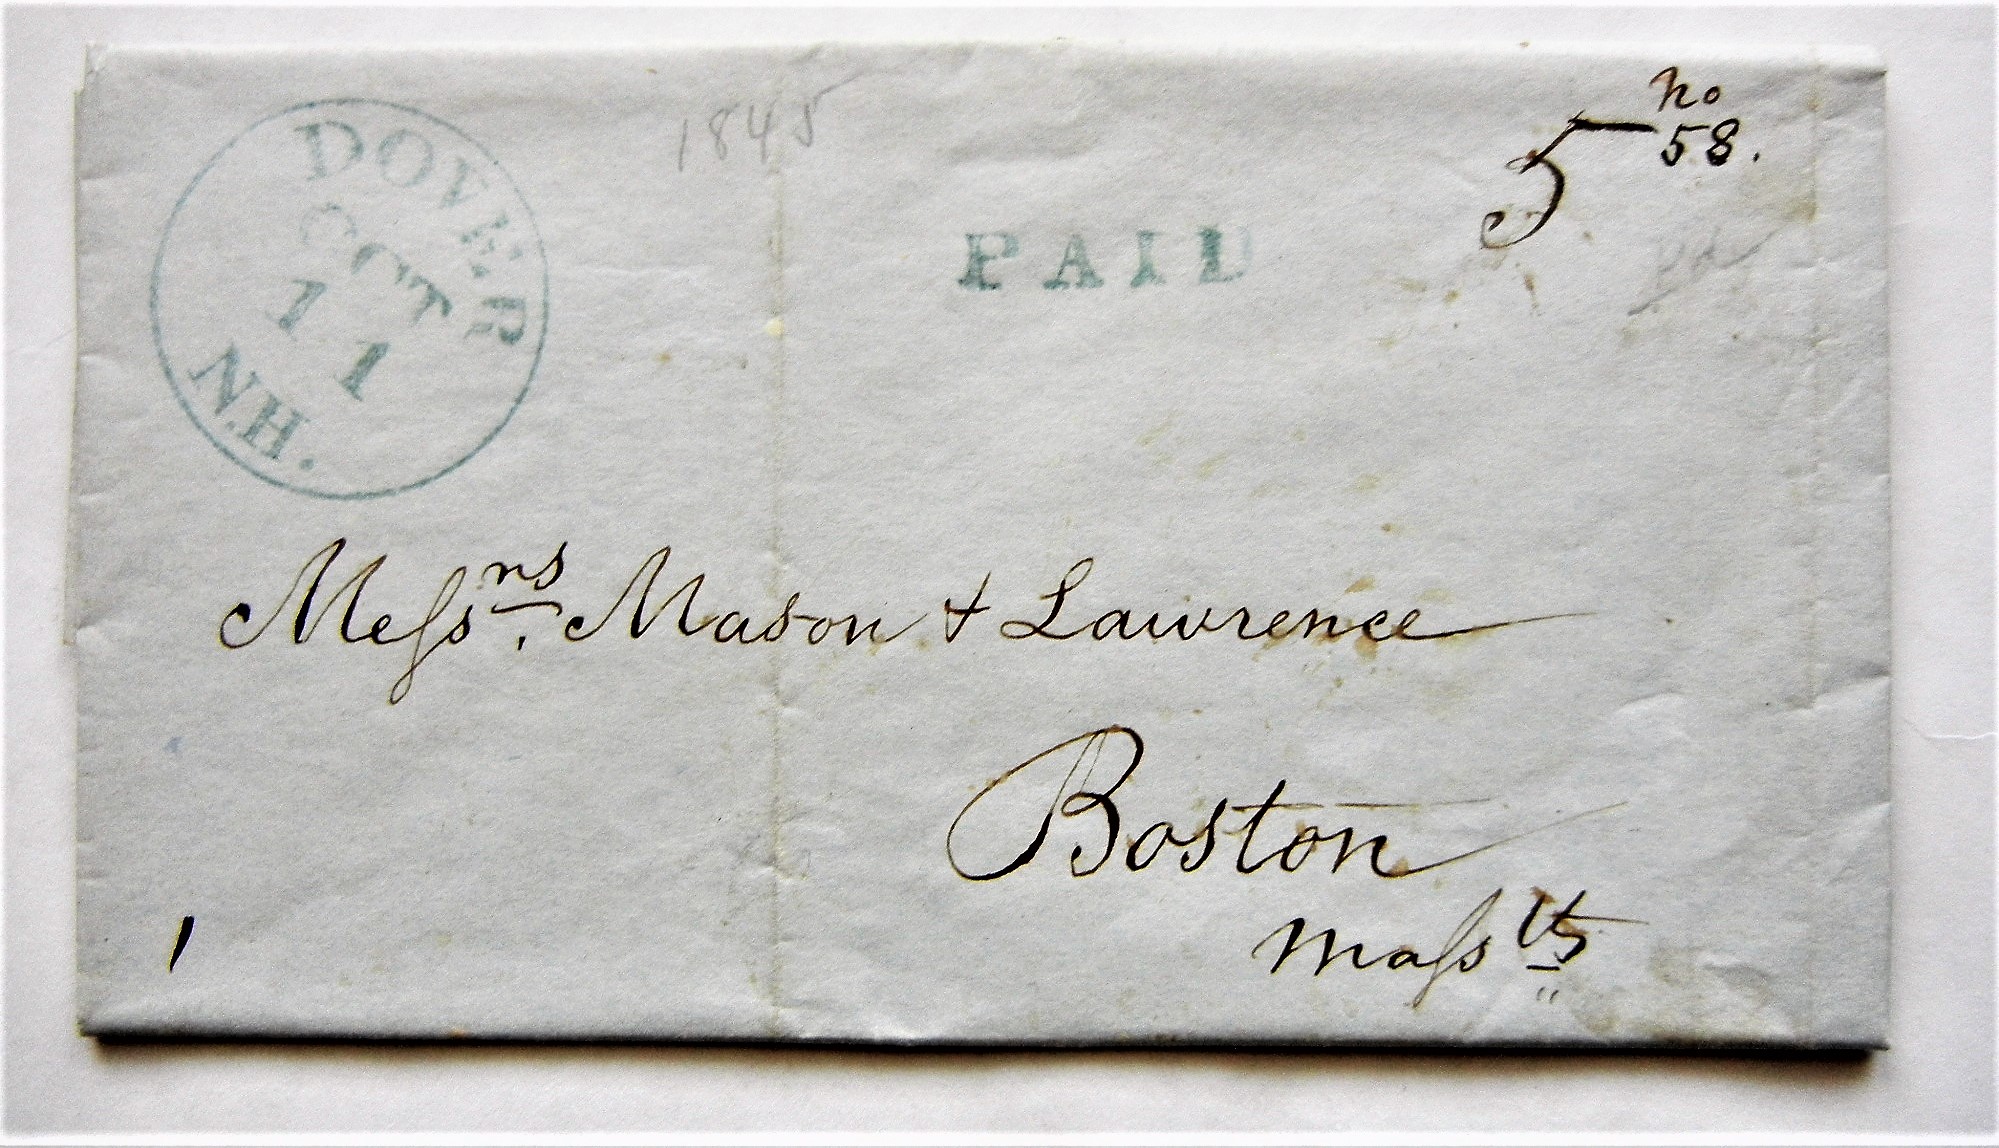 DOVER
OCT
11
N.H.
1845
PAID
5
no
58.
pd
Messrs. Mason & Lawrence
Boston
Massts